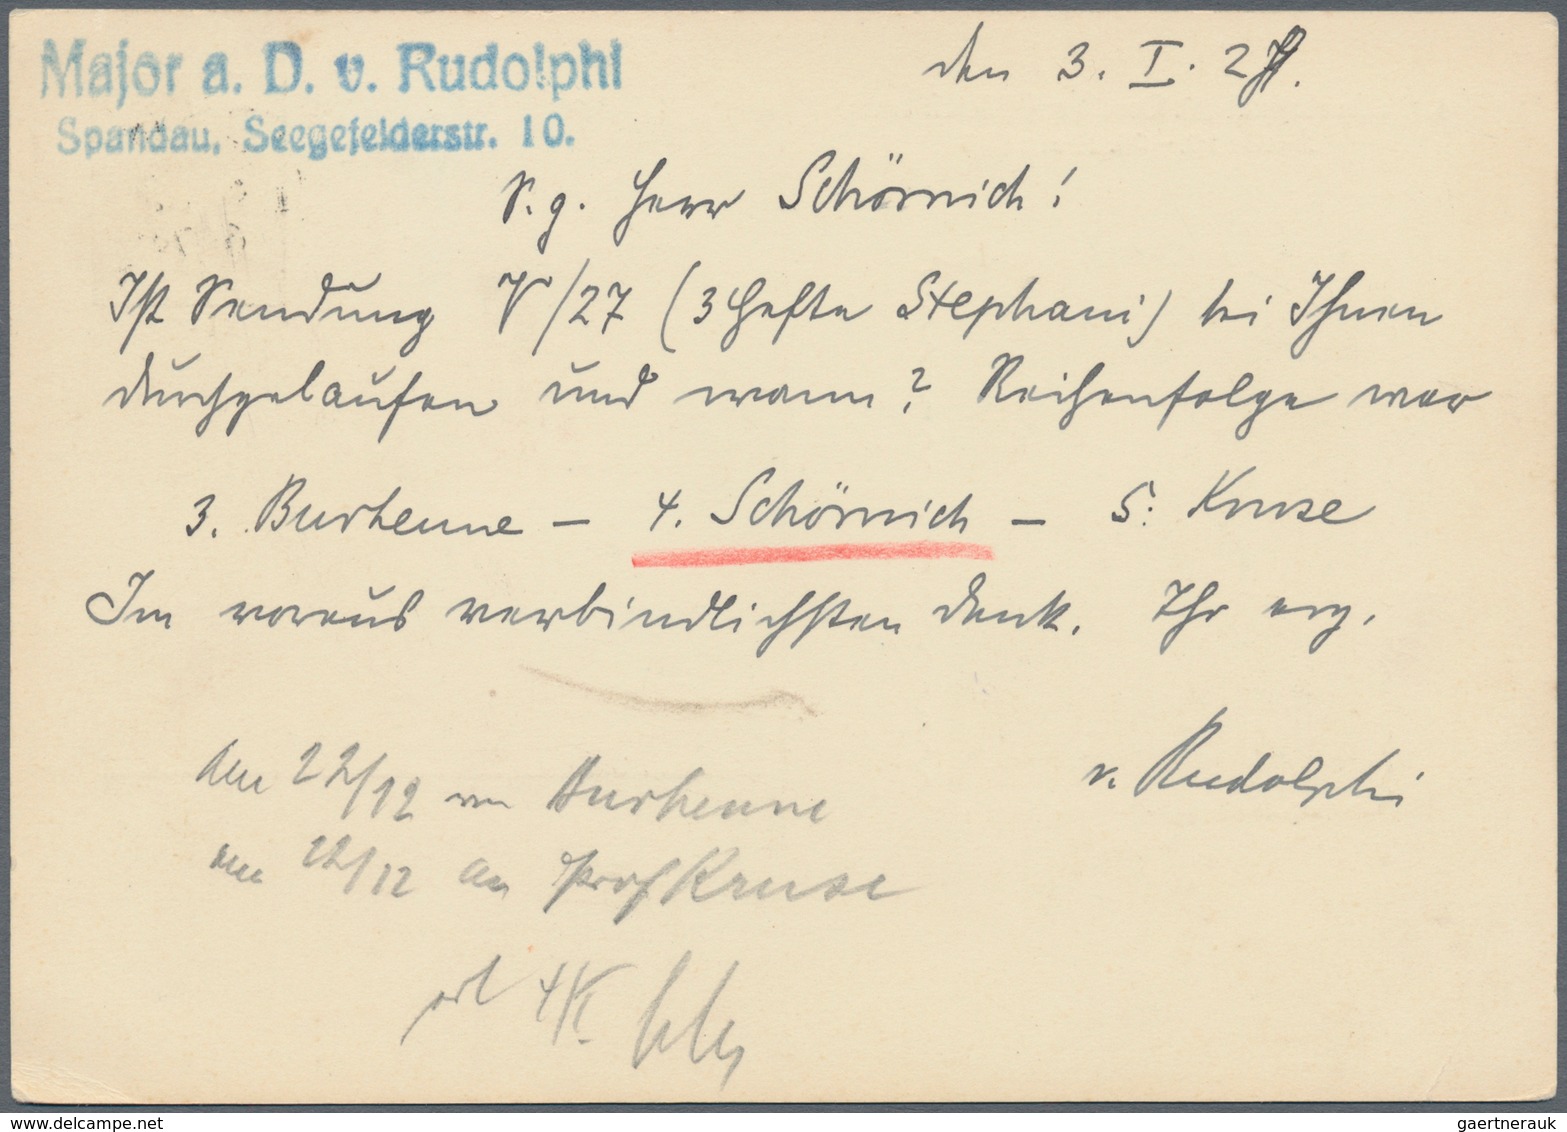 Major a. D. v. Rudolphi
Spandau, Seegefelderstr. 10.
den 3. I. 28.
S. g. Herr Schörnich!
Ist Sendung V/27 (3 Hefte Stephani) bei Ihnen
durchgelaufen und wann? Reihenfolge war
3. Burhenne – 4. Schörnich – 5. Kruse
Im voraus verbindlichsten Dank. Ihr erg.
v. Rudolphi
am 22/12 von Burhenne
am 22/12 an Prof Kruse
erl 4/I
gaertnerauk @ www.delcampe.net